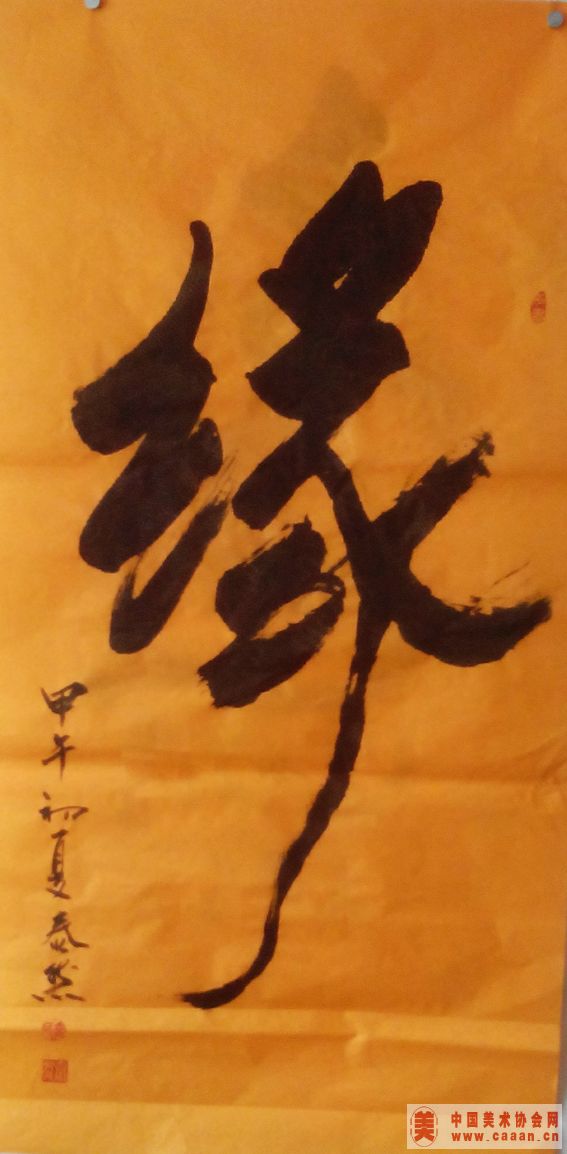 缘
甲午初夏泰然
美 中国美术协会网
www.caaan.cn